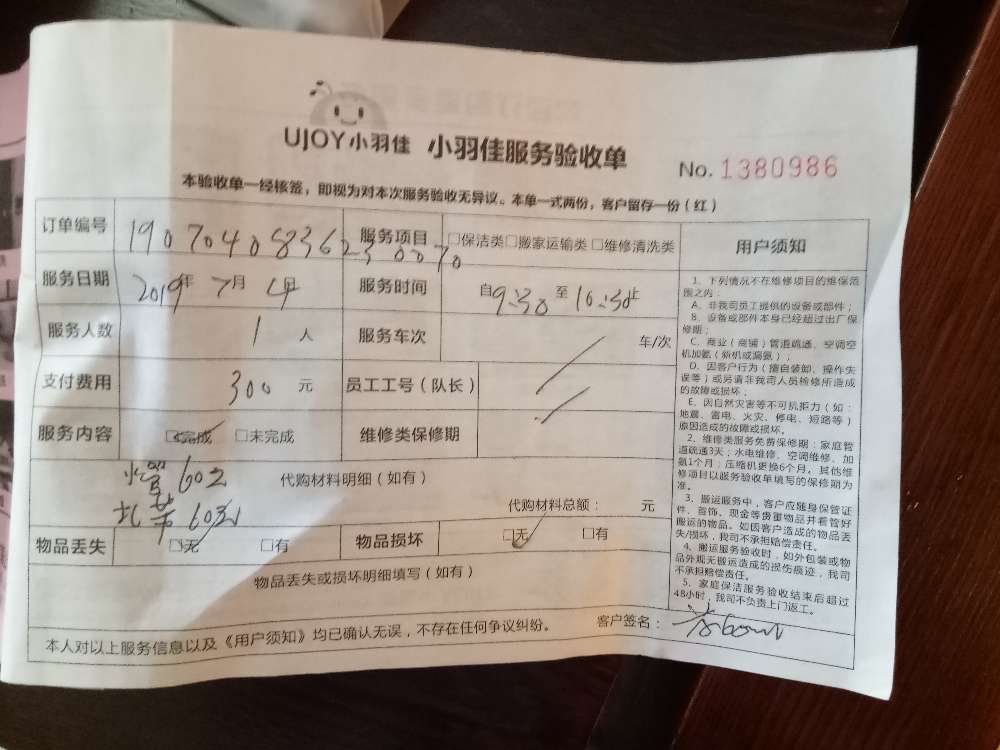 UJOY小羽佳 小羽佳服务验收单 No. 1380986
本验收单一经核签，即视为对本次服务验收无异议。本单一式两份，客户留存一份（红）
订单编号 服务项目 □保洁类□搬家运输类□维修清洗类
服务日期 2019年 7月 4日 服务时间 自9:30 至 10:30止
服务人数 1 人 服务车次 车/次
支付费用 300 元 员工工号（队长）
服务内容 □完成 □未完成 维修类保修期
60元 代购材料明细（如有）
60元 代购材料总额： 元
物品丢失 □无 □有 物品损坏 □无 □有
物品丢失或损坏明细填写（如有）
本人对以上服务信息以及《用户须知》均已确认无误，不存在任何争议纠纷。 客户签名：
用户须知
1、下列情况不在维修项目的维保范
围之内：
A、非我司员工提供的设备或部件；
B、设备或部件本身已经超过出厂保
修期；
C、商业（商铺）管道疏通、空调空
机加氨（新机或漏氨）；
D、因客户行为（擅自装卸、操作失
误等）或另请非我司人员检修所造成
的故障或损坏；
E、因自然灾害等不可抗拒力（如：
地震、雷电、火灾、停电、短路等）
原因造成的故障或损坏。
2、维修类服务免费保修期：家庭管
道疏通3天；水电维修、空调维修、加
氨1个月；压缩机更换6个月。其他维
修项目以服务验收单填写的保修期为
准。
3、搬运服务中，客户应随身保管证
件、首饰、现金等贵重物品并看管好
搬运的物品。如因客户造成的物品丢
失/损坏，我司不承担赔偿责任。
4、搬运服务验收时，如外包装或物
品外观无搬运造成的损伤痕迹，我司
不承担赔偿责任。
5、家庭保洁服务验收结束后超过
48小时，我司不负责上门返工。